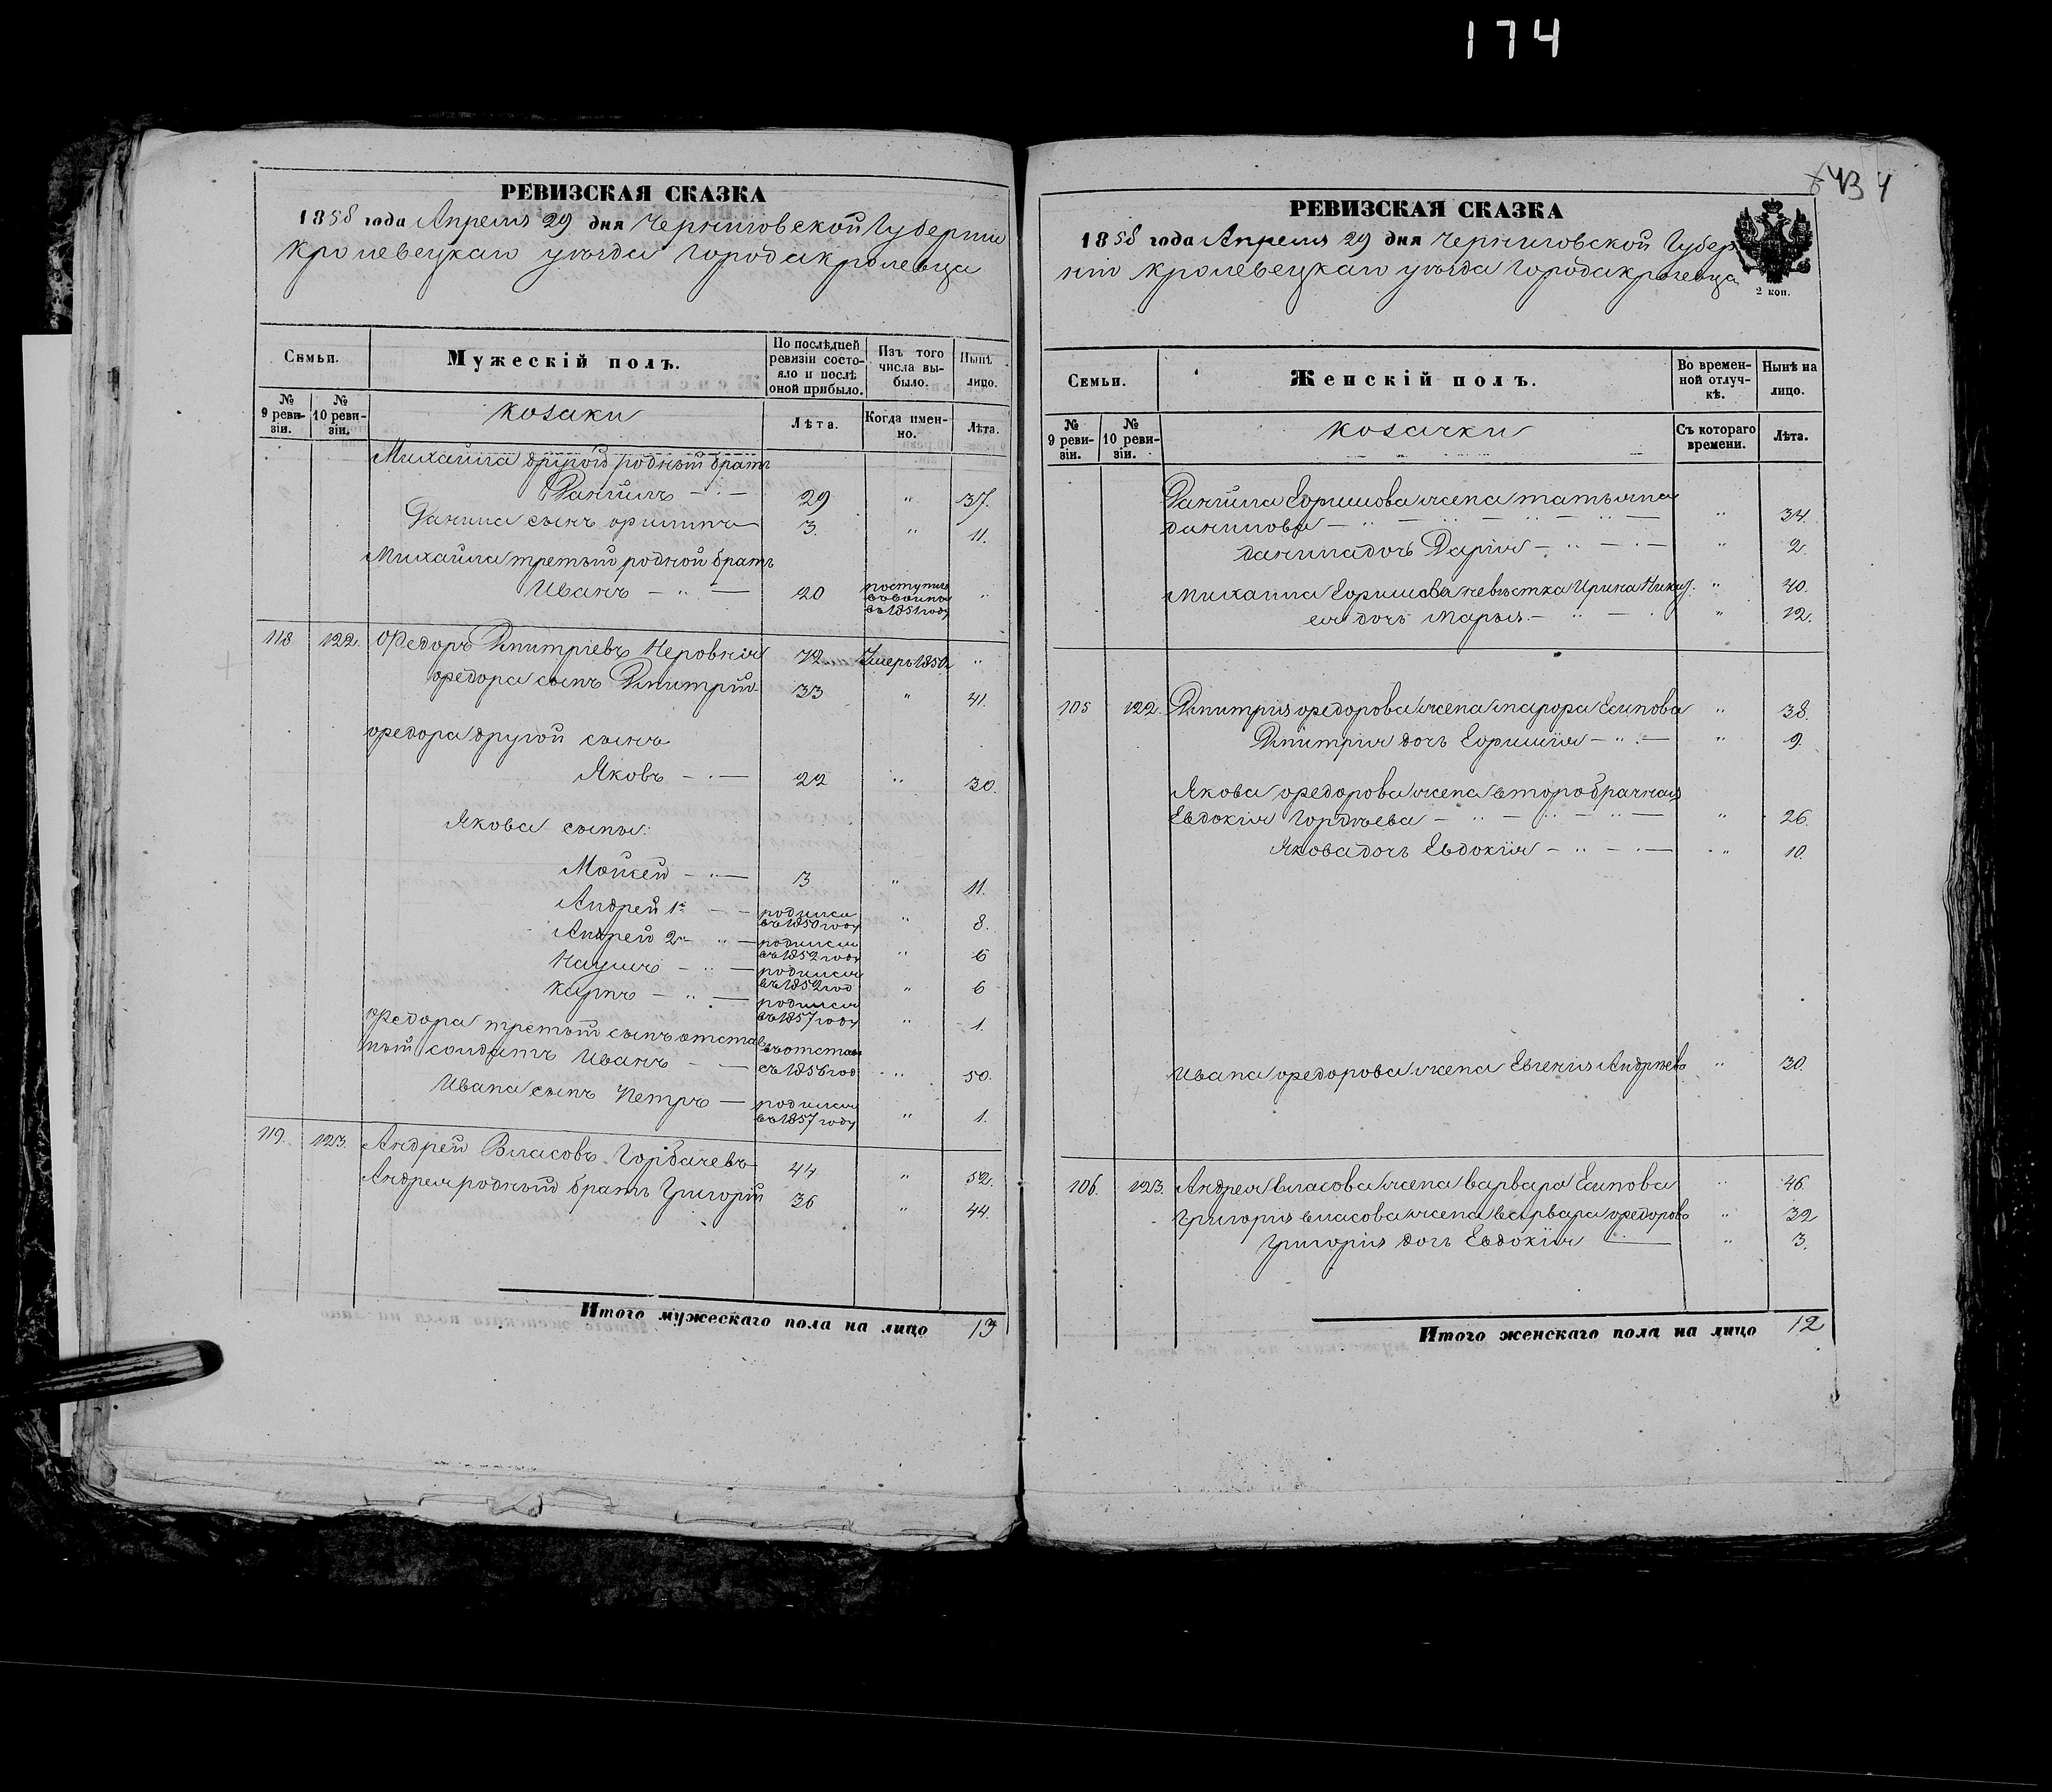 174
РЕВИЗСКАЯ СКАЗКА
1858 года Апреля 29 дня Черниговской Губернiи
Кролевецкаго уѣзда города Кролевца
Семьи.
Мужескiй полъ.
По послѣдней ревизiи состояло и послѣ оной прибыло.
Изъ того числа выбыло.
Нынѣ лицо.
№ 9 ревизiи.
№ 10 ревизiи.
Козаки
Лѣта.
Когда именно.
Лѣта.
Михайла другой родный братъ
Данiилъ 29 " 37.
Данила сынъ Филипъ 3. " 11.
Михайла третый родной братъ
Иванъ 20 поступилъ въ 1851 году "
118 122. Федоръ Дмитрiевъ Неровнiя 72 Умеръ 1850 "
Федора сынъ Дмитрiй 33 " 41.
Федора другой сынъ
Яковъ 22 " 30.
Якова сыны:
Мойсей 3 " 11.
Андрей 1й родился въ 1850 году " 8.
Андрей 2й родился въ 1852 году " 6
Наумъ родился въ 1852 год " 6
Карпъ родился въ 1857 году " 1.
Федора третый сынъ отстав
ный солдатъ Иванъ въ отстав съ 1856 год " 50.
Ивана сынъ Петръ родился въ 1857 году " 1.
119. 123. Андрей Власовъ Горбачевъ 44 " 52.
Андрея родный братъ Григорiй 36 " 44.
Итого мужескаго пола на лицо 13
434
РЕВИЗСКАЯ СКАЗКА
1858 года Апреля 29 дня Черниговской Губер
нiи Кролевецкаго уѣзда города Кролевца
2 коп.
Семьи.
Женскiй полъ.
Во временной отлучкѣ.
Нынѣ на лицо.
№ 9 ревизiи.
№ 10 ревизiи.
Козачки
Съ котораго времени.
Лѣта.
Данiила Ефимова жена Татьяна
Данилова " 34.
Данила дочь Дарiя " 2.
Михаила Ефимова невѣстка Ирина Никил. " 40.
ея дочь Марья " 12.
105 122. Дмитрiя Федорова жена Марфа Есипова " 38.
Дмитрiя дочь Ефимiя " 9.
Якова Федорова жена второбрачная
Евдокiя Гордѣева " 26.
Якова дочь Евдокiя " 10.
Ивана Федорова жена Евгенiя Андрѣева " 30.
106. 123. Андрея Власова жена Варвара Есипова " 46.
Григорiя Власова жена Варвара Федоров " 32
Григорiя дочь Евдокiя " 3.
Итого женскаго пола на лицо 12